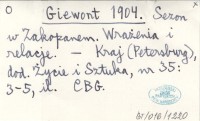 O Giewont 1904. Sezon x
w Zakopanem. Wrażenia i
relacje. — Kraj (Petersburg),
dod. Życie i Sztuka, nr 35:
3-5, il. CBG.
BT/016/1220